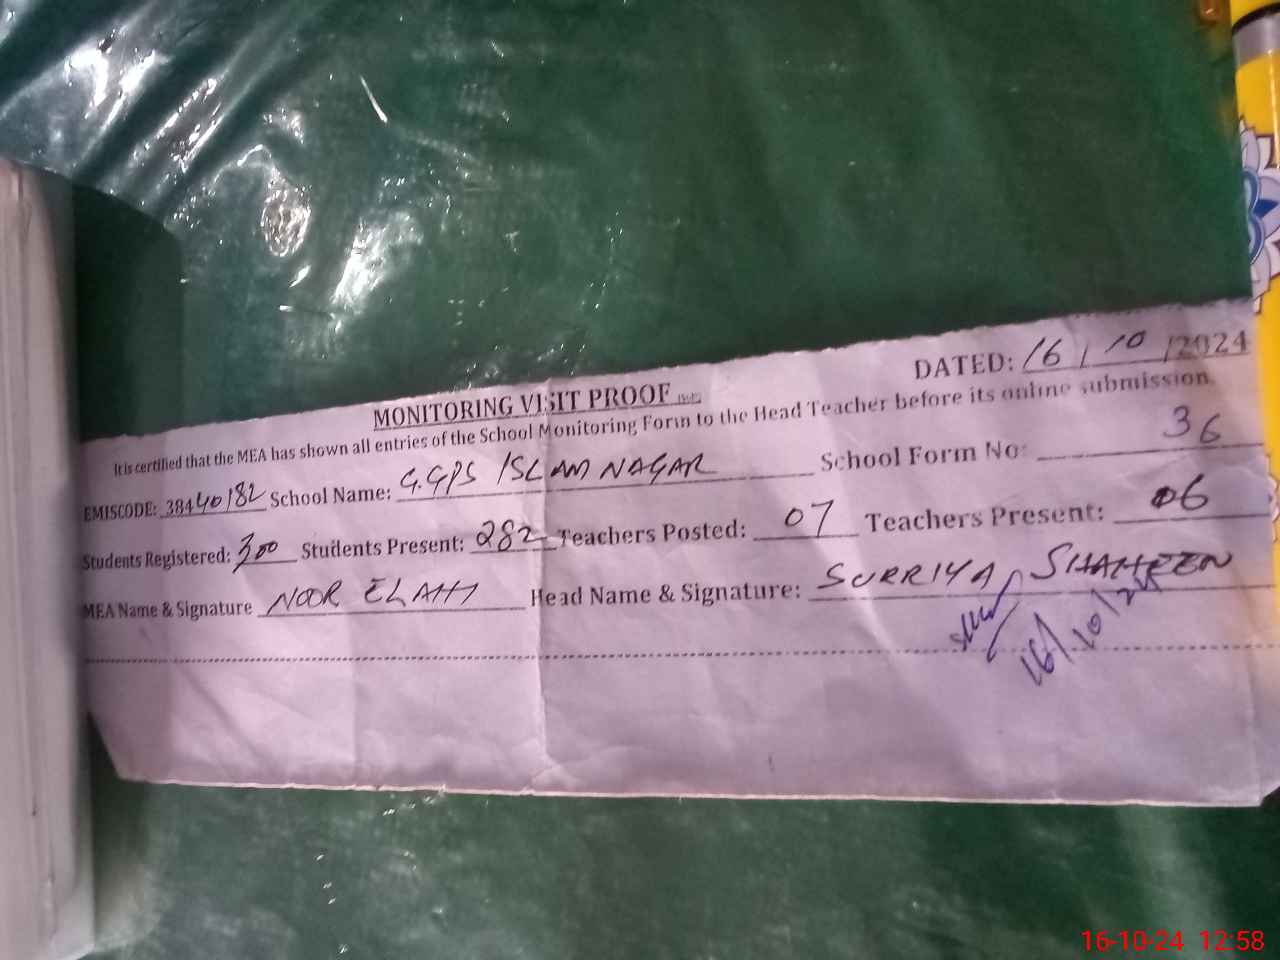 DATED: 16/10/2024
MONITORING VISIT PROOF
It is certified that the MEA has shown all entries of the School Monitoring Form to the Head Teacher before its online submission.
EMISCODE: 38440182 School Name: G.GPS ISLAM NAGAR School Form No: 36
Students Registered: 300 Students Present: 282 Teachers Posted: 07 Teachers Present: 06
MEA Name & Signature NOOR ELAHI Head Name & Signature: SURRIYA SHAHEEN
16/10/24
16-10-24 12:58